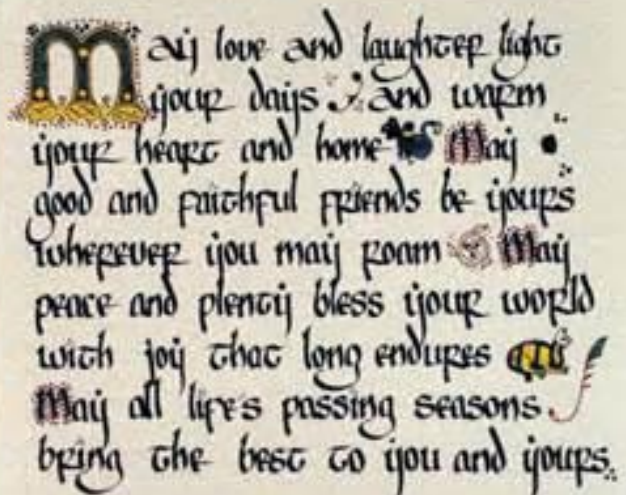 May love and laughter light
your days and warm
your heart and home May
good and faithful friends be yours
wherever you may roam May
peace and plenty bless your world
with joy that long endures
May all life's passing seasons
bring the best to you and yours.